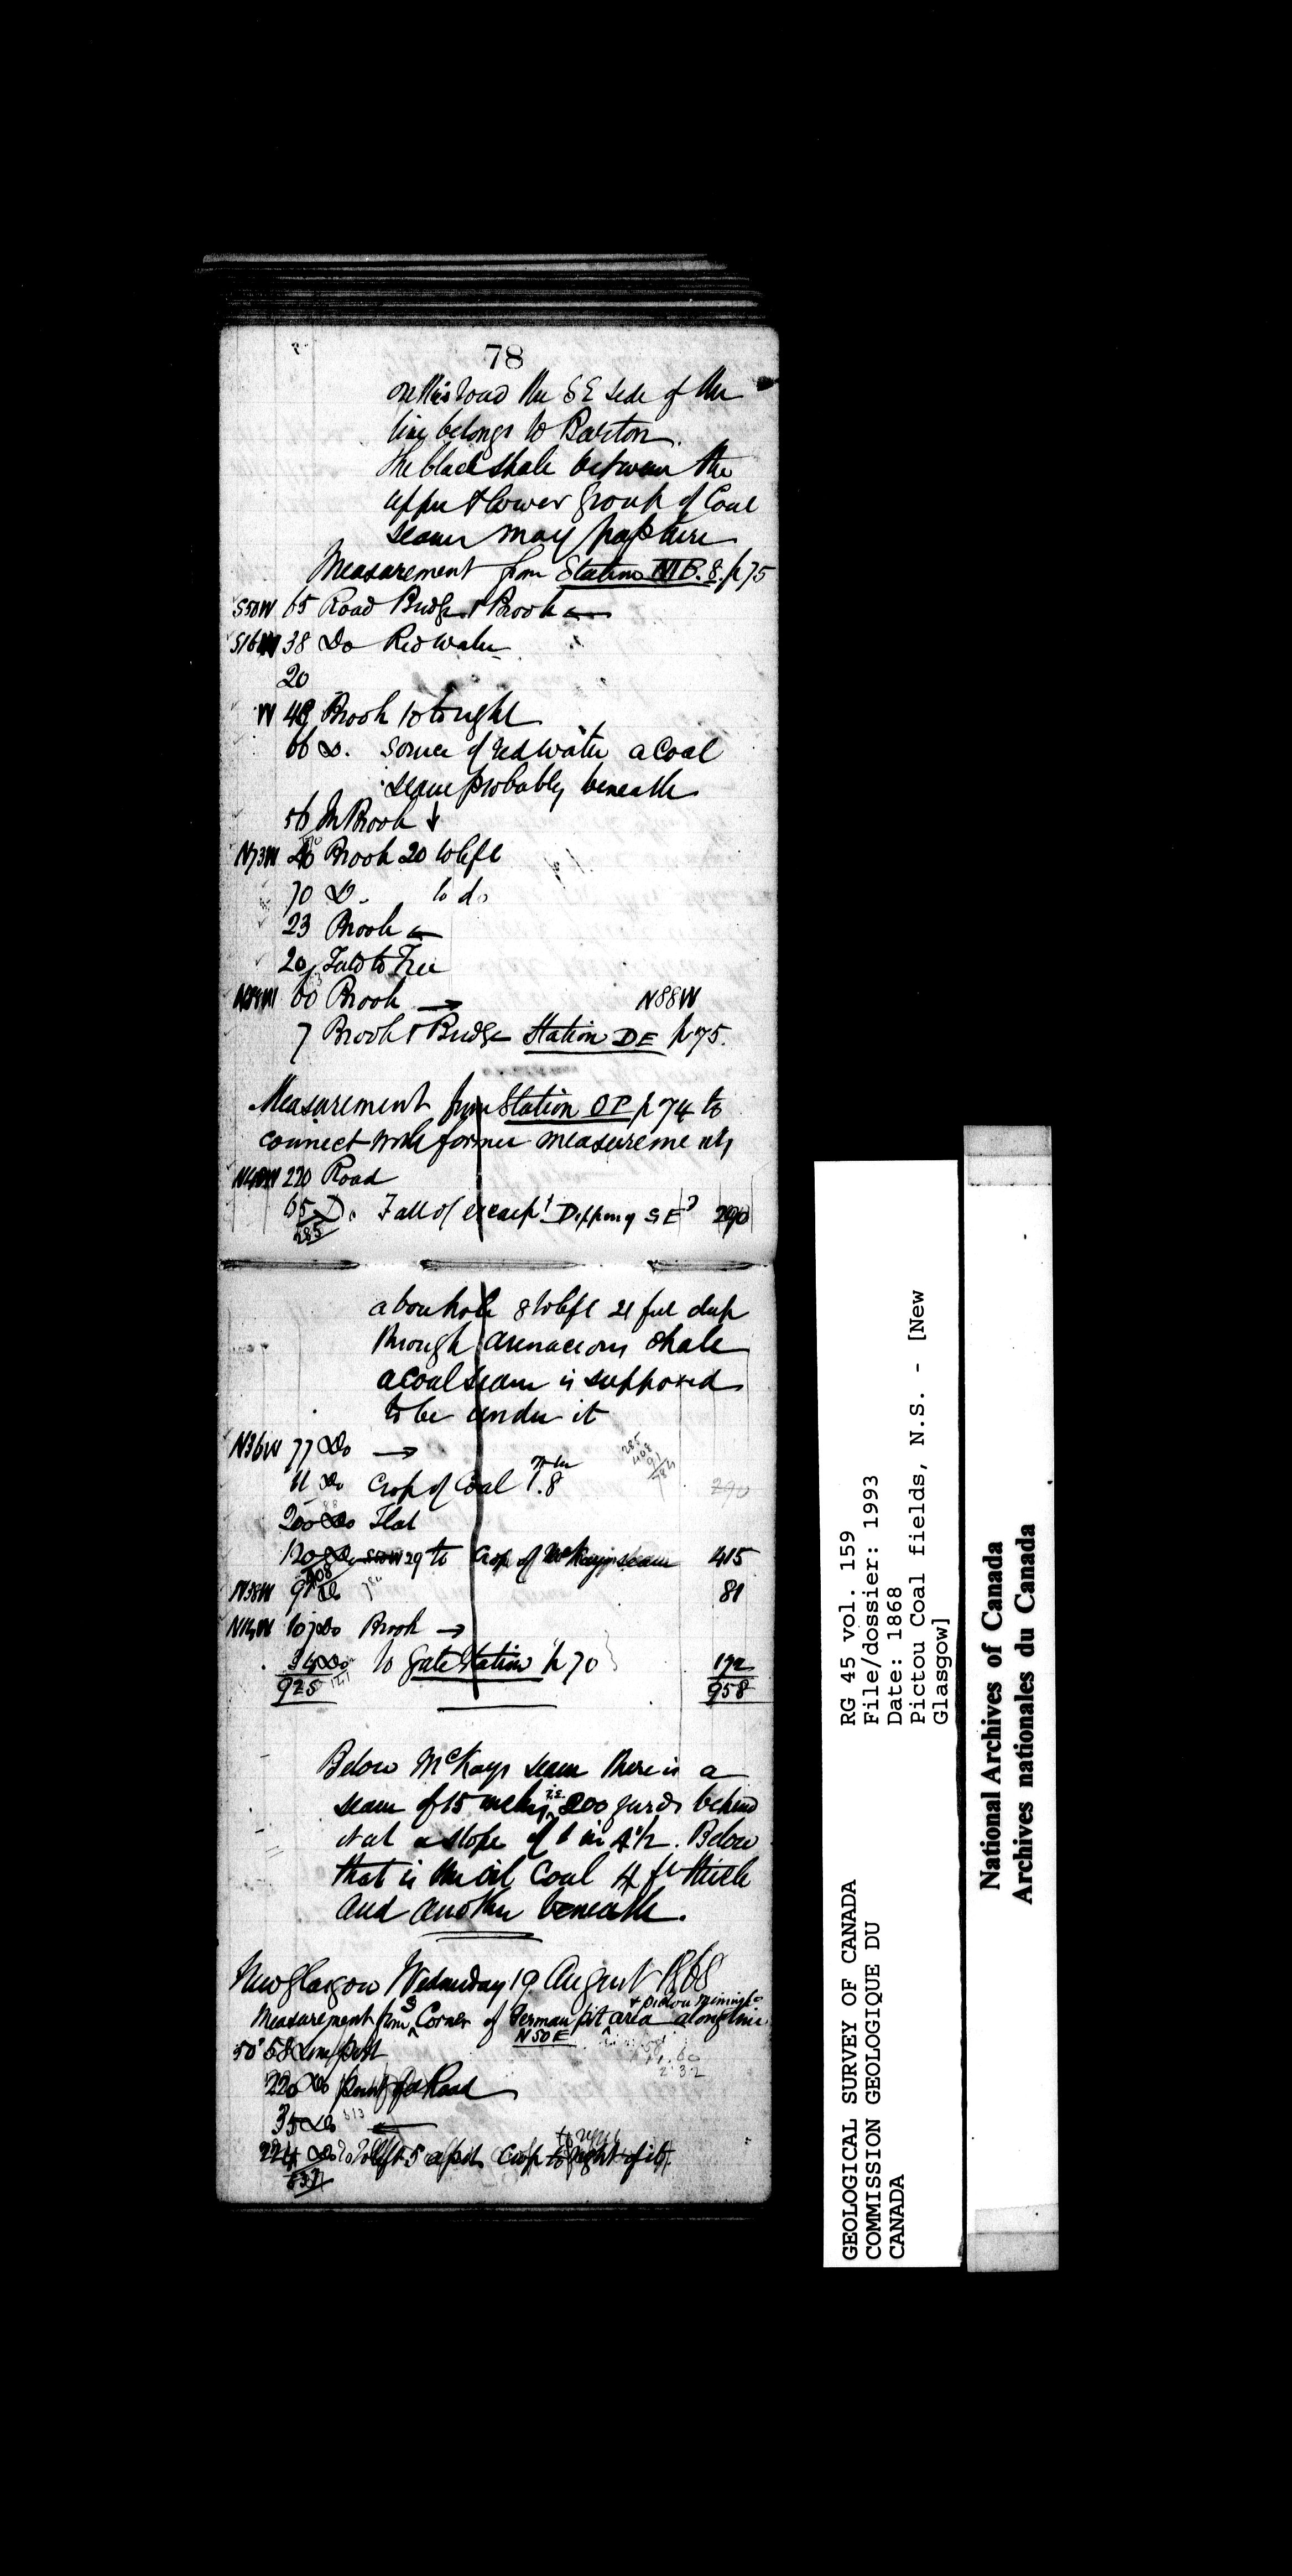 78
on this road the SE side of the
line belongs to Barton.
The black shale between the
upper & lower group of Coal
seams may pass here
Measurement from Station MB. 8. p 75
S50W 65 Road Bridge & Brook ←
S16W 38 Do Red water
20
W 49 Brook 10 to right
66 Do. source of red water a Coal
seam probably beneath
56 In Brook ↓
N73W Brook 20 to left
70 Do. to do
23 Brook ←
20 Field to Tree
60 Brook → N88W
7 Brook & Bridge Station DE p 75.
Measurement from Station OP p 74 to
connect with former measurements
220 Road
65 Do. Fall of escarpt Dipping SE? 290
285
8 to left 21 feet deep
through arenaceous shale
a coal seam is supposed
to be under it
N36W 77 Do →
285
408
91
784
11 Do Crop of Coal 1.8
290
200 Do Flat
120 Do S50W 29 to Crop of McKays seam 415
408
N38W 91 Do 81
107 Do Brook →
34 Do to Gate Station p 70 172
925 141 958
Below McKays seam there is a
seam of 15 inches 200 yards behind
it at a slope of 1 in 4½. Below
that is the oil Coal 4 ft thick
and another beneath.
New Glasgow Wednesday 19 August 1868
& Pictou Mining Co
Measurement from S Corner of German pit area along line
N50E
50° 58 Line post
220 Do Road
35 Do 313 ←
224 Do to left 5 Crop to right of it.
537
GEOLOGICAL SURVEY OF CANADA
COMMISSION GEOLOGIQUE DU
CANADA
RG 45 vol. 159
File/dossier: 1993
Date: 1868
Pictou Coal fields, N.S. - [New
Glasgow]
National Archives of Canada
Archives nationales du Canada